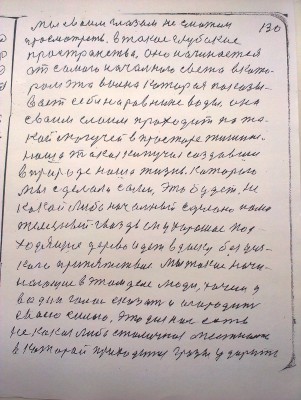 130
мы своим глазам не сможем
просмотреть, в такие глубокие
пространства. Оно начинается
от самого начального света в кото-
рого эта волна которая показы-
вает себя наравне воды. она
своим слоем проходит по та-
кой могучей в просторе тишине.
наша такая могучая создавши
в природе наша жизнь. которого
мы сделали сами, это будет не
какой либо начальный сделано нами
железный гвоздь ему хорошее под
ходящее дерево идет в доску без вся-
кого препятствие мы такие начи-
нающие в этом деле люди, хочем у
воды
свою силою. Это для нас есть
не какая либо местность
в которой приходится грозы ударить